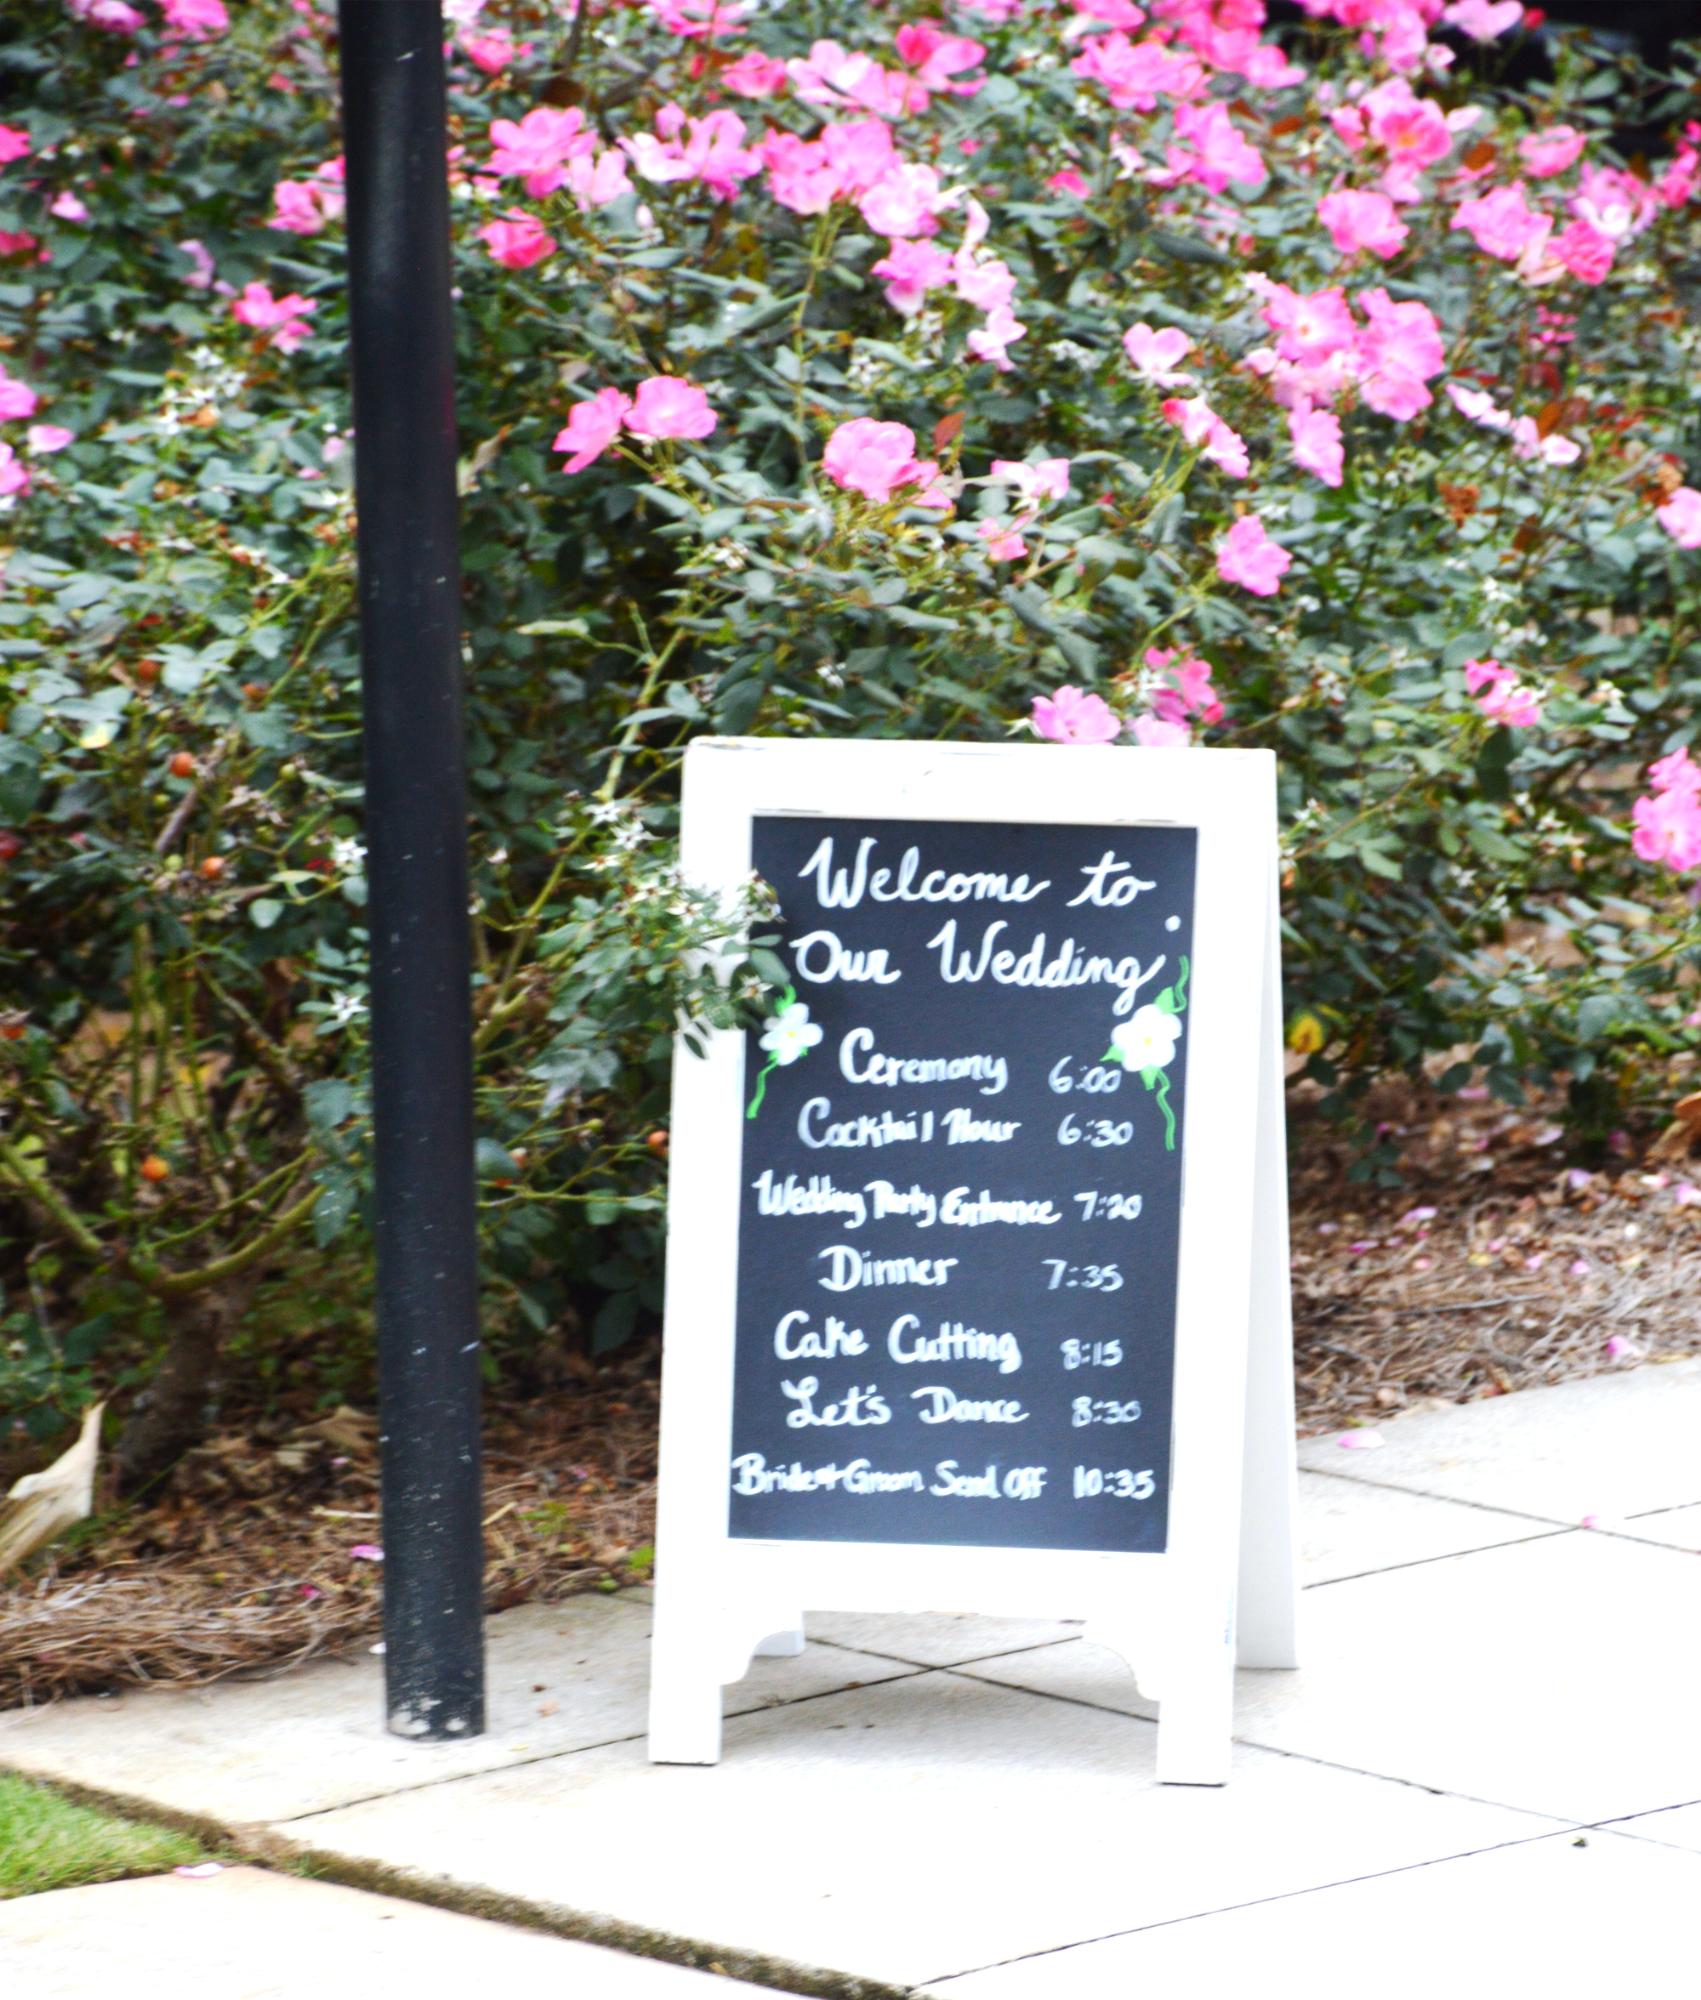 Welcome to
Our Wedding
Ceremony 6:00
Cocktail Hour 6:30
Wedding Party Entrance 7:20
Dinner 7:35
Cake Cutting 8:15
Let's Dance 8:30
Bride + Groom Send Off 10:35